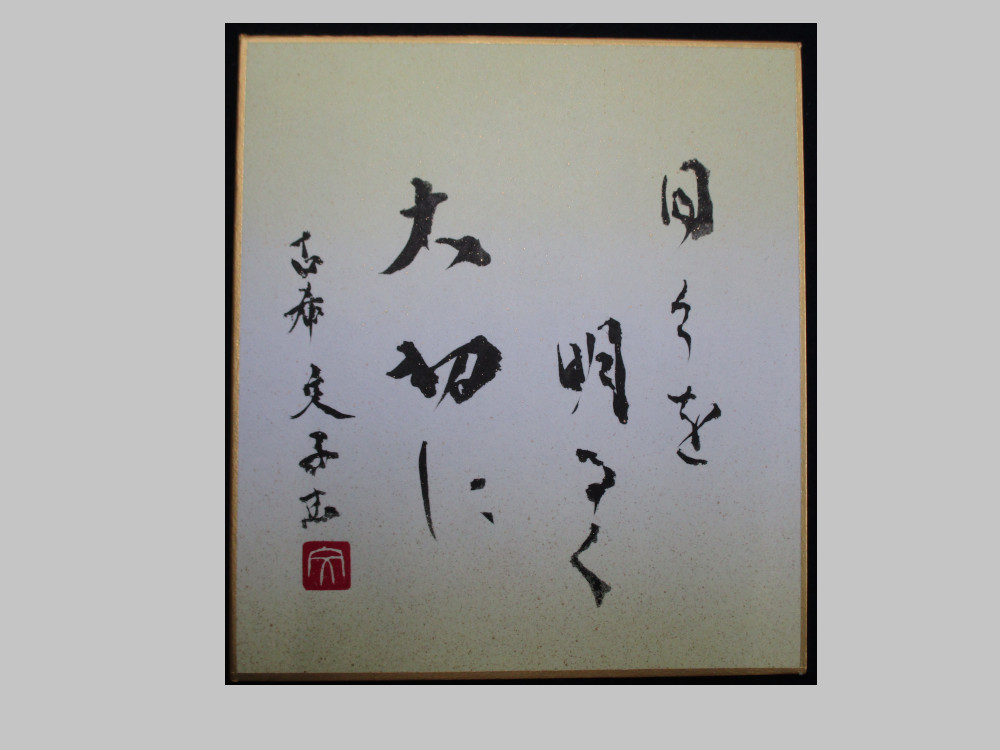 日々を
明るく
大切に
古希 文子書
文